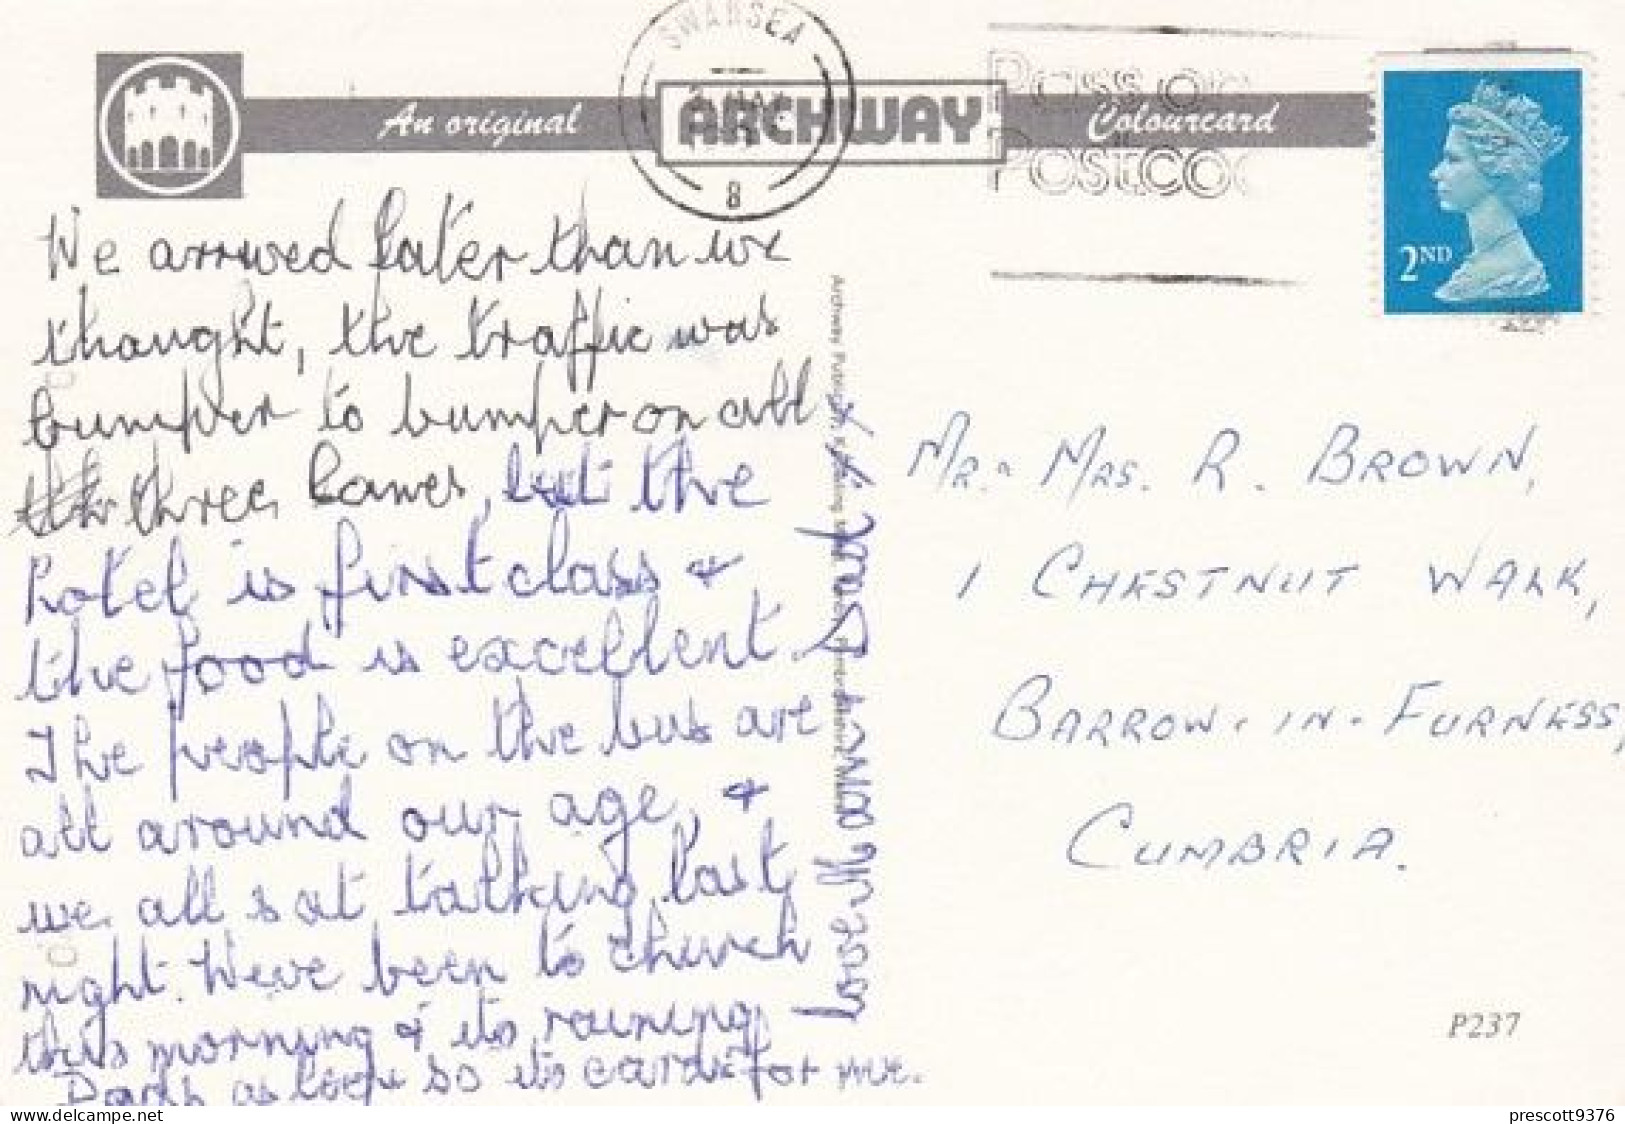 SWANSEA
MAY
8
Pass on
Postco
An original
ARCHWAY
Colourcard
2ND
We arrived later than we
thought, the traffic was
bumper to bumper on all
three lanes, but the
hotel is first class &
the food is excellent.
The people on the bus are
all around our age, &
we all sat talking last
night. Weve been to church
this morning & its raining
as so its cards for me.
Love Mavis & Jack x x
MR. MRS. R. BROWN,
1 CHESTNUT WALK,
BARROW-IN-FURNESS,
CUMBRIA.
P237
delcampe.net
prescott9376